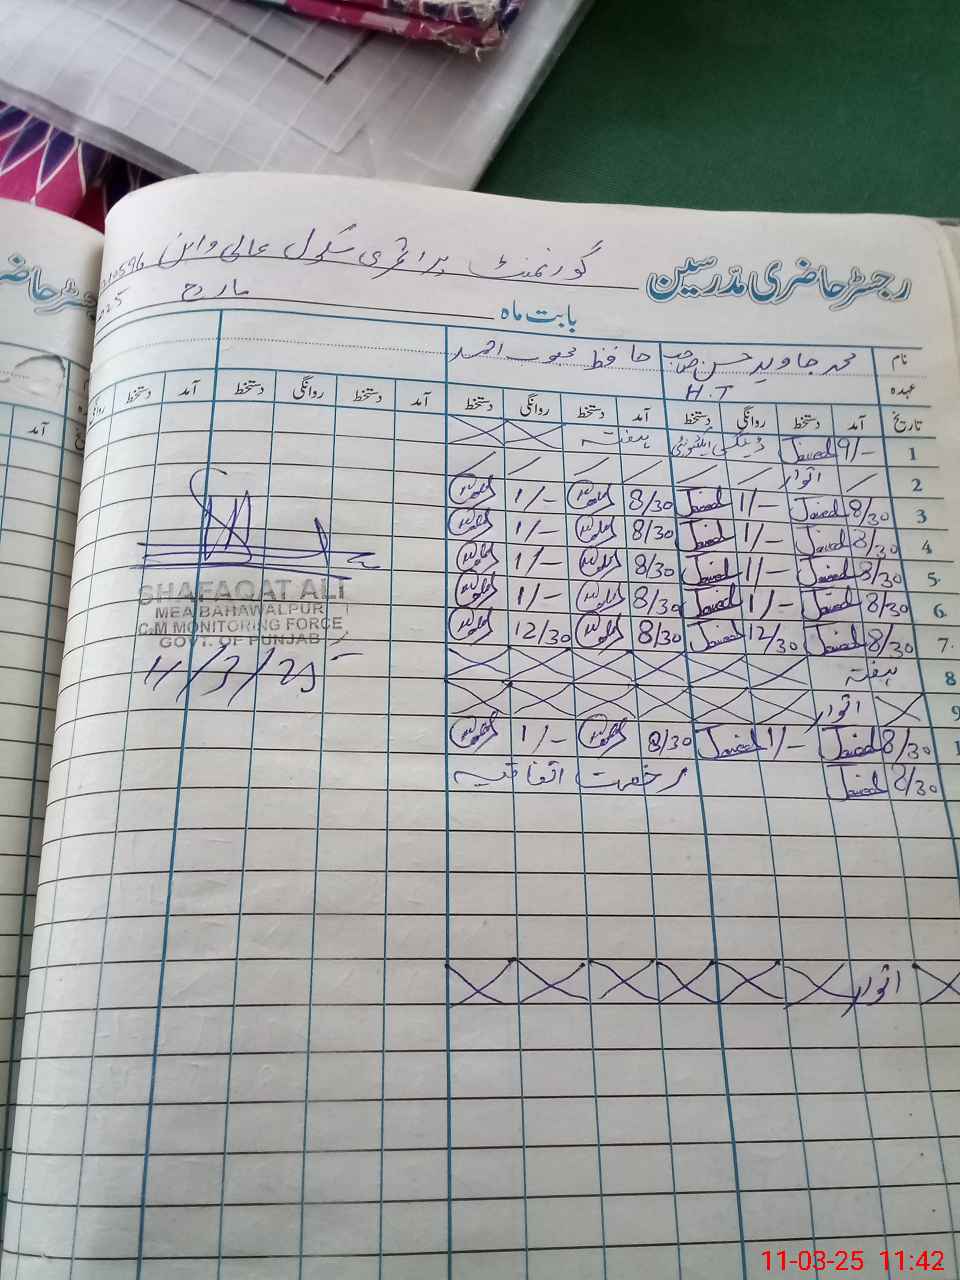 رجسٹر حاضری مدرسین گورنمنٹ پرائمری سکول عالی واہن
بابت ماہ مارچ
نام محمد جاوید حسن صاحب حافظ محبوب احمد
عہدہ H.T
تاریخ آمد دستخط روانگی دستخط آمد دستخط روانگی دستخط آمد دستخط روانگی دستخط آمد دستخط
1 9/- Javed ہفتہ
2 اتوار
3 8/30 Javed 1/- Javed 8/30 1/-
4 8/30 Javed 1/- Javed 8/30 1/-
5 8/30 Javed 1/- Javed 8/30 1/-
6 8/30 Javed 1/- Javed 8/30 1/-
7 8/30 Javed 12/30 Javed 8/30 12/30
8 ہفتہ
9 اتوار
1 8/30 Javed 1/- Javed 8/30 1/-
8/30 Javed رخصت اتفاقیہ
اتوار
SHAFAQAT ALI
MEA BAHAWALPUR
C.M MONITORING FORCE
GOVT. OF PUNJAB
11/3/25
آمد
11-03-25 11:42